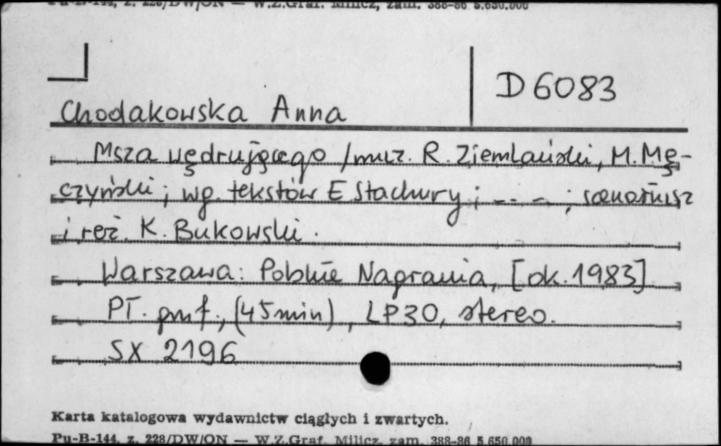 Pu-B-144, z. 228/DW/ON — W.Z.Graf. Milicz, zam. 388-86 5.650.000
D 6083
Chodakowska Anna
Msza wędrującego / muz. R. Ziemlański, M. Mę-
czyński ; wg. tekstów E Stachury ; -- - ; scenariusz
i reż. K. Bukowski.
Warszawa: Polskie Nagrania, [ok. 1983]
PT. , (45 min), LP30, stereo.
SX 2196
Karta katalogowa wydawnictw ciągłych i zwartych.
Pu-B-144, z. 228/DW/ON — W.Z.Graf. Milicz, zam. 388-86 5.650.000